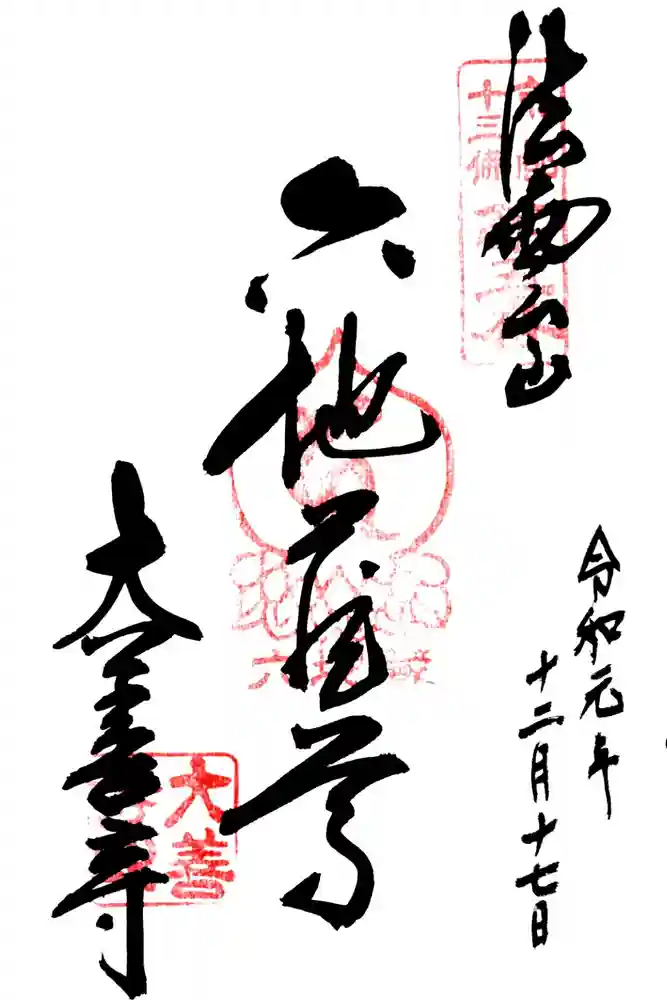 法雲山
令和元年
十二月十七日
六地蔵尊
大善寺
十三佛
大善